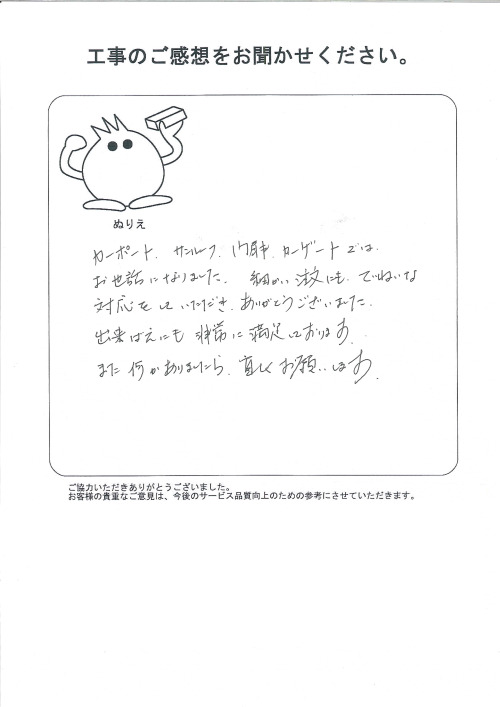 工事のご感想をお聞かせください。
ぬりえ
カーポート、サンルーフ、門扉、カーゲートでは、
お世話になりました。細かい注文にも、ていねいな
対応をしていただき、ありがとうございました。
出来ばえにも非常に満足しております。
また何かありましたら、宜しくお願いします。
ご協力いただきありがとうございました。
お客様の貴重なご意見は、今後のサービス品質向上のための参考にさせていただきます。